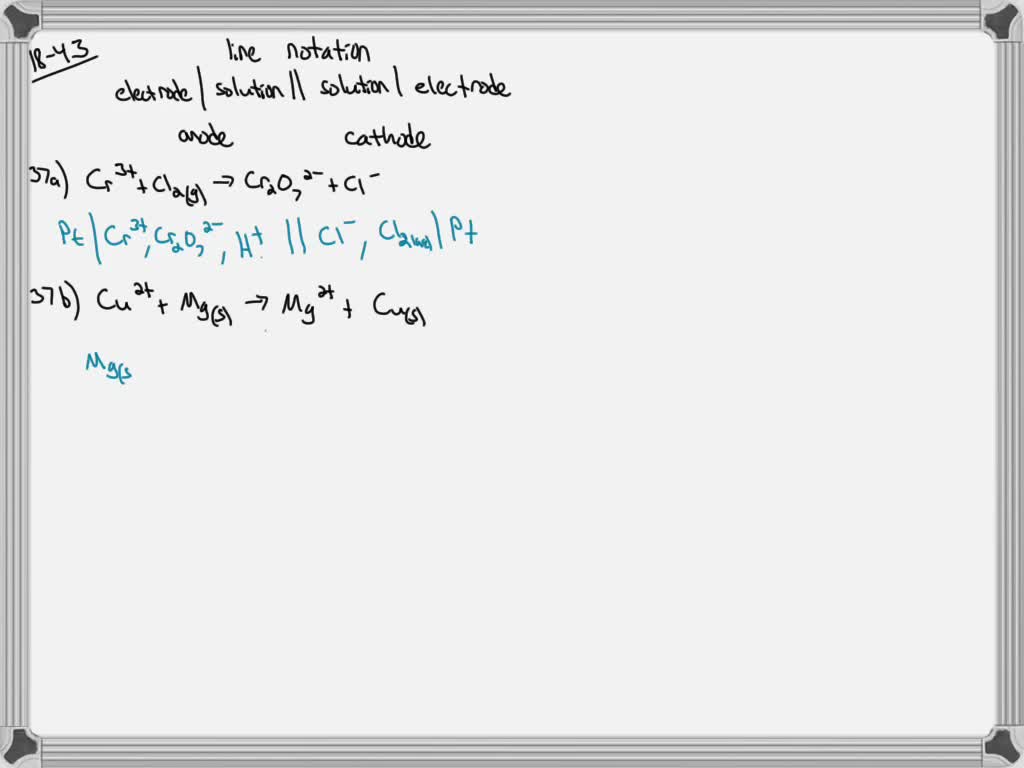 18-43
line notation
electrode | solution || solution | electrode
anode cathode
37a) Cr³⁺ + Cl₂(g) → Cr₂O₇²⁻ + Cl⁻
Pt | Cr³⁺, Cr₂O₇²⁻, H⁺ || Cl⁻, Cl₂ | Pt
37b) Cu²⁺ + Mg(s) → Mg²⁺ + Cu(s)
Mg(s